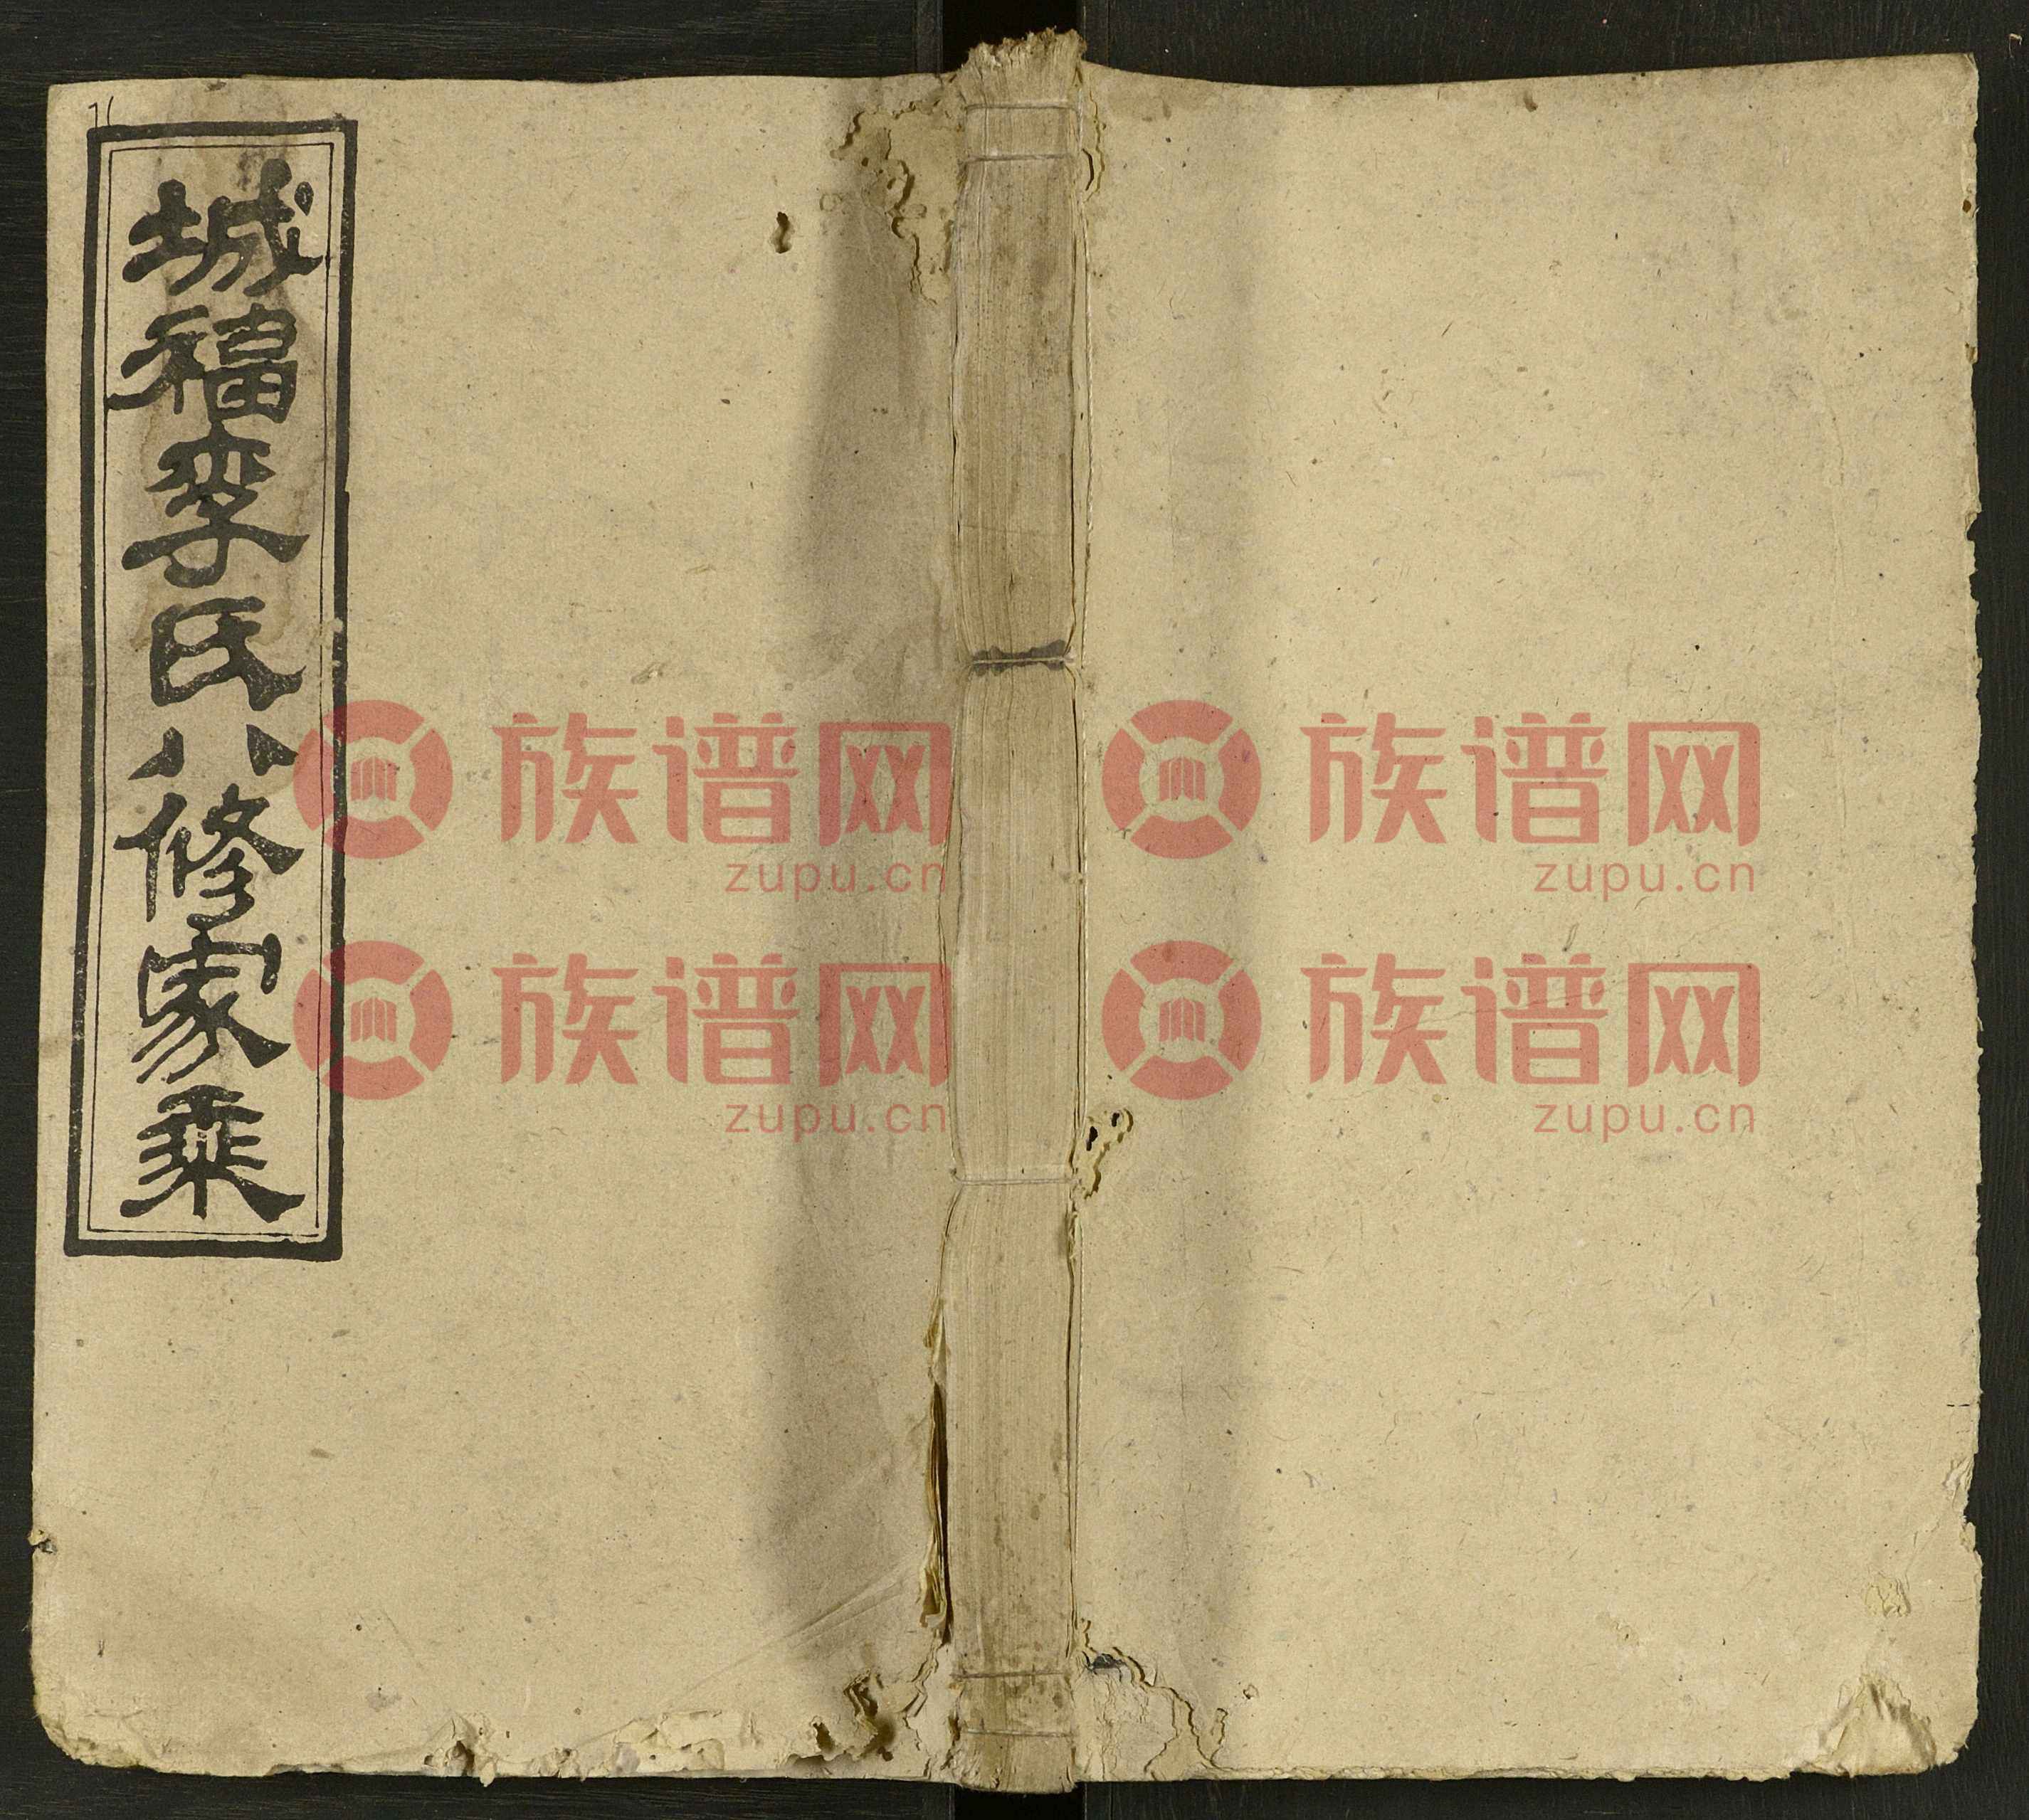 城福李氏八修家乘
族谱网
zupu.cn
族谱网
zupu.cn
族谱网
zupu.cn
族谱网
zupu.cn